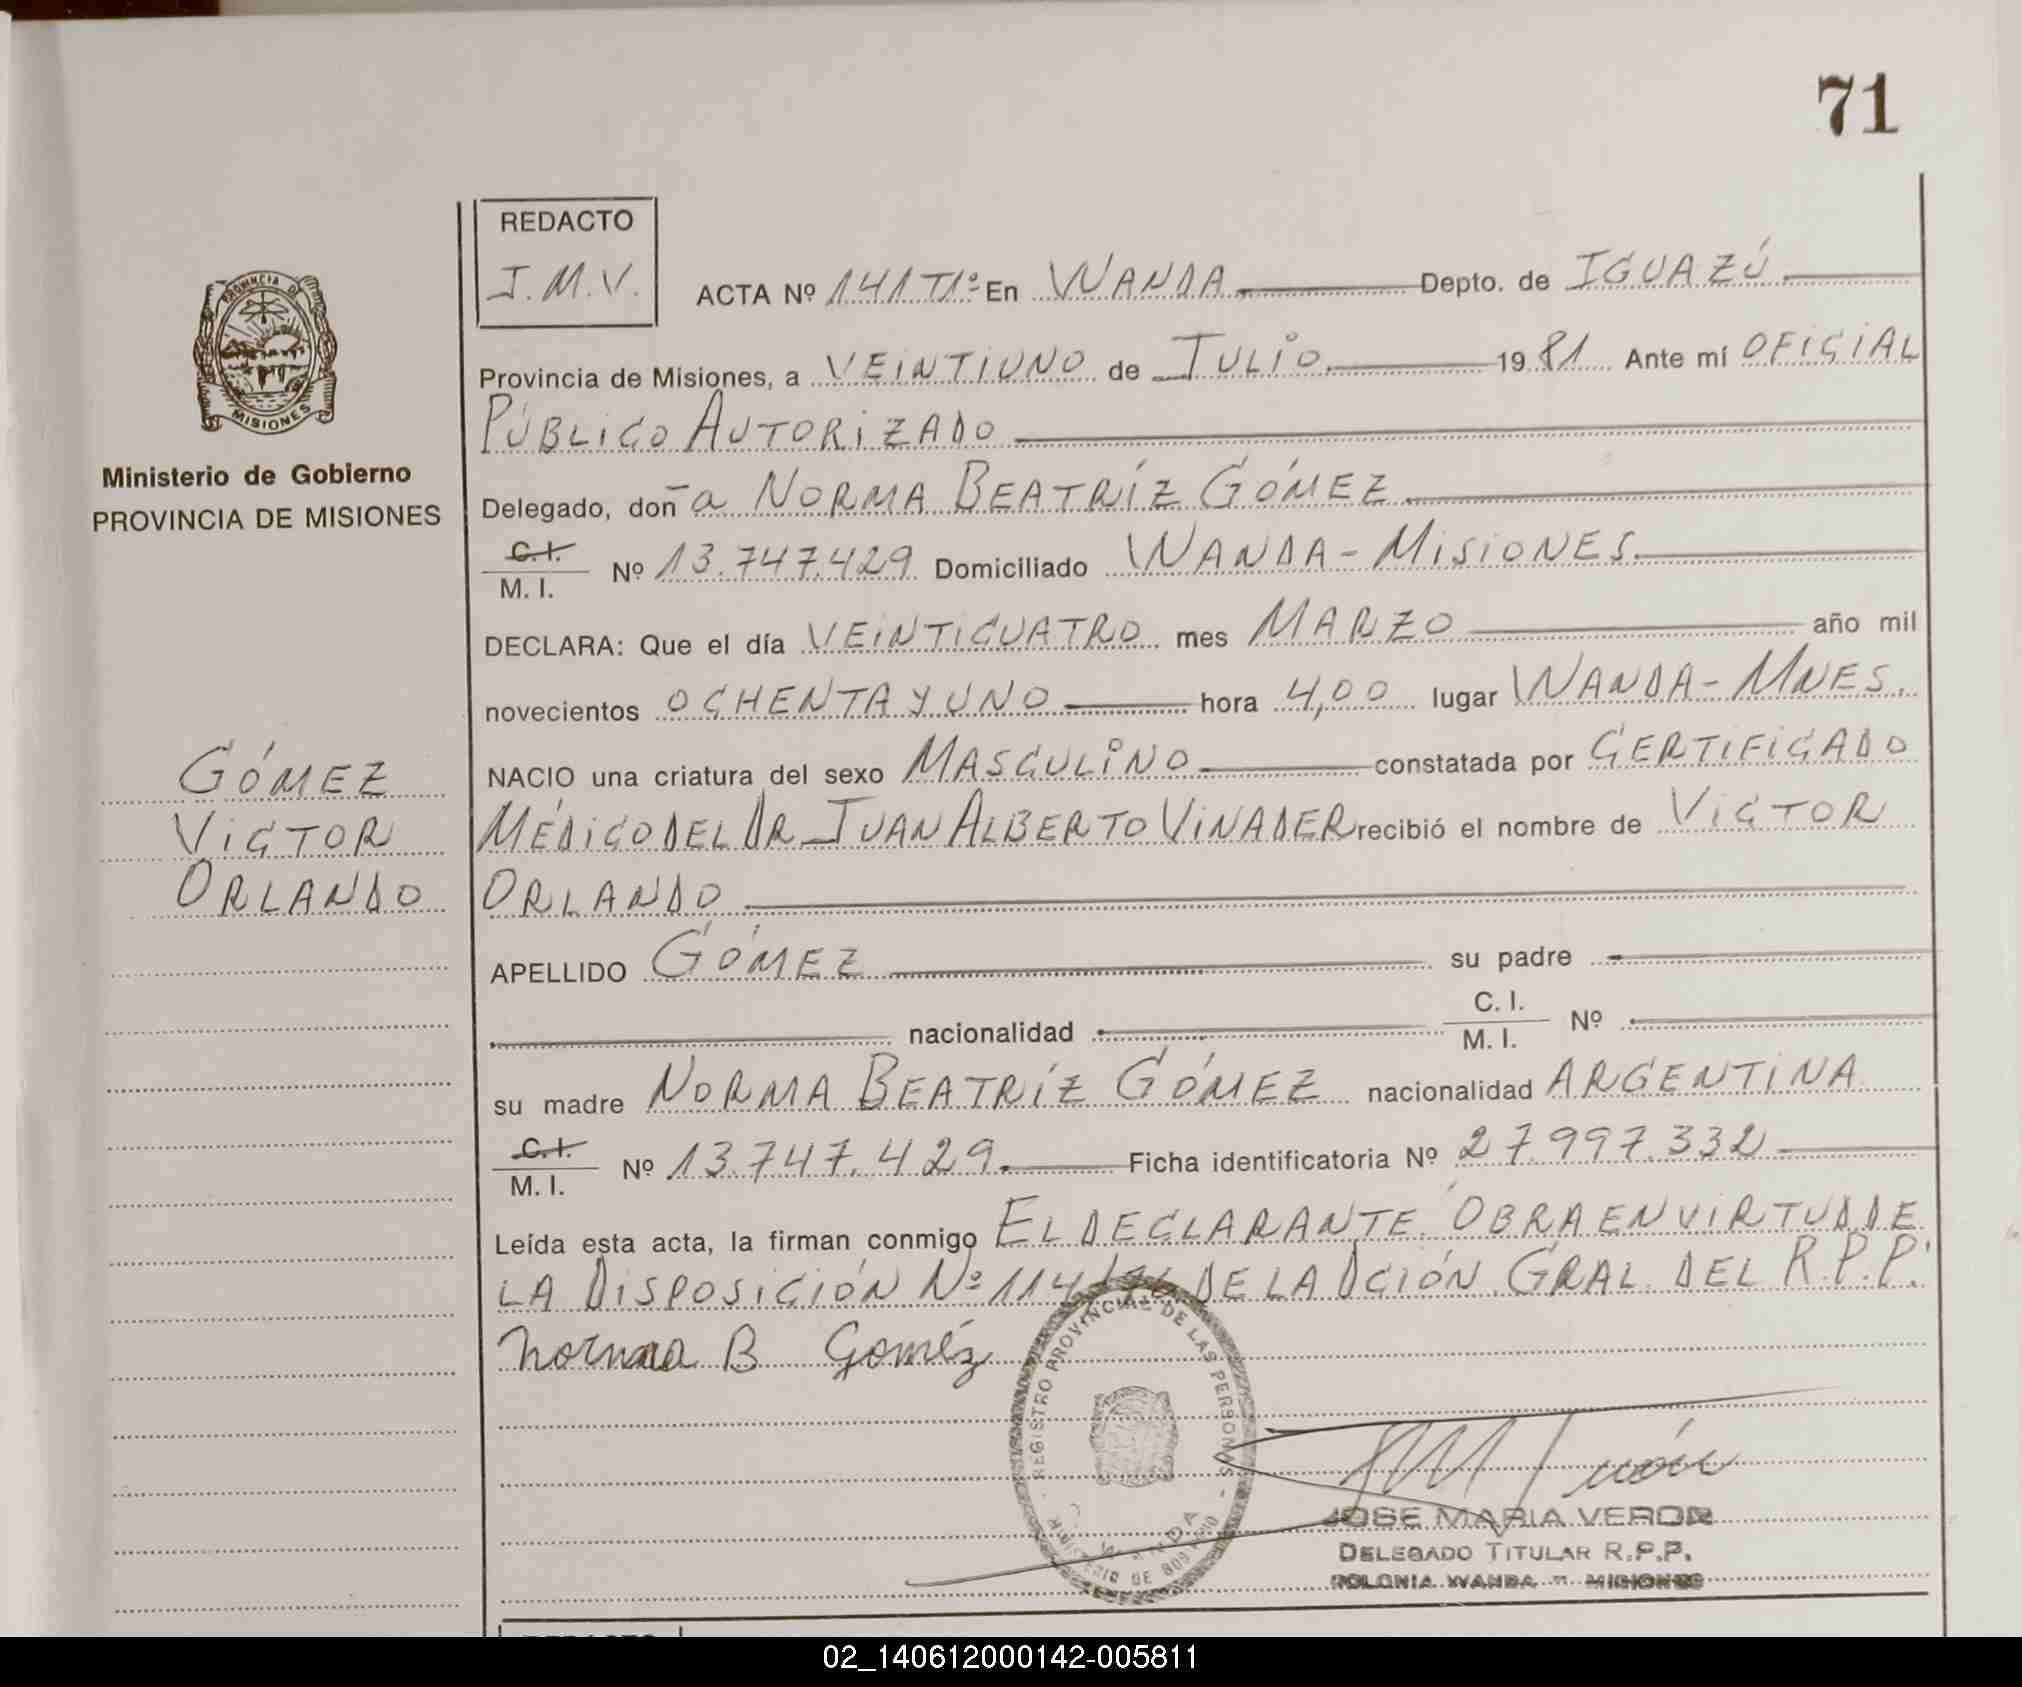 71
REDACTO
J.M.V.
ACTA Nº 141 T1º En WANDA Depto. de IGUAZÚ
Provincia de Misiones, a VEINTIUNO de JULIO 1981 Ante mí OFICIAL
PÚBLICO AUTORIZADO
Delegado, doña NORMA BEATRÍZ GÓMEZ
C.I.
M. I. Nº 13.747.429 Domiciliado WANDA - MISIONES.
DECLARA: Que el día VEINTICUATRO mes MARZO año mil
novecientos OCHENTA Y UNO hora 4,00 lugar WANDA - MNES.
NACIO una criatura del sexo MASCULINO constatada por CERTIFICADO
MÉDICO DEL DR JUAN ALBERTO VINADER recibió el nombre de VICTOR
ORLANDO
APELLIDO GÓMEZ su padre
nacionalidad C. I.
M. I. Nº
su madre NORMA BEATRÍZ GÓMEZ nacionalidad ARGENTINA
C.I.
M. I. Nº 13.747.429. Ficha identificatoria Nº 27.997.332
Leída esta acta, la firman conmigo EL DECLARANTE. OBRA EN VIRTUD DE
LA DISPOSICIÓN Nº 114/76 DE LA DCIÓN GRAL. DEL R.P.P.
Norma B Goméz
REGISTRO PROVINCIAL DE LAS PERSONAS
WANDA
MINISTERIO DE GOBIERNO
JOSE MARIA VERON
DELEGADO TITULAR R.P.P.
COLONIA WANDA - MISIONES
PROVINCIA DE
MISIONES
Ministerio de Gobierno
PROVINCIA DE MISIONES
GÓMEZ
VICTOR
ORLANDO
02_140612000142-005811